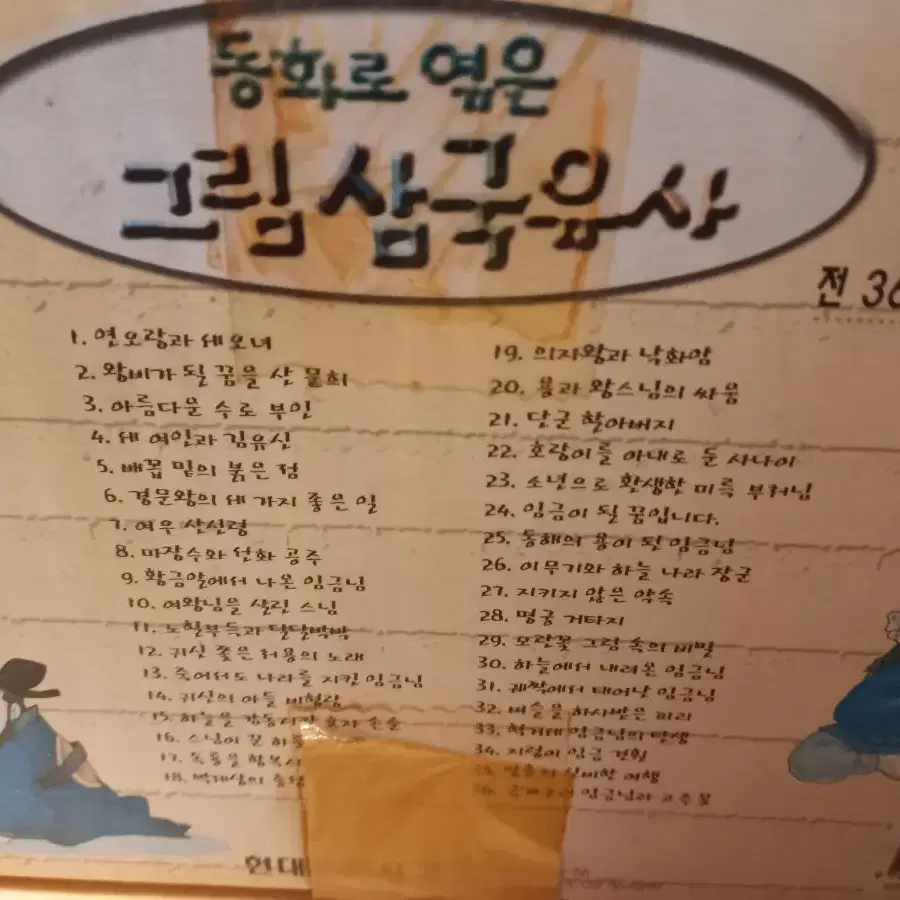 동화로 엮은
그림 삼국유사
전 36
1. 연오랑과 세오녀
2. 왕비가 될 꿈을 산 문희
3. 아름다운 수로 부인
4. 세 여인과 김유신
5. 배꼽 밑의 붉은 점
6. 경문왕의 세 가지 좋은 일
7. 여우 산신령
8. 마장수와 선화 공주
9. 황금알에서 나온 임금님
10. 여왕님을 살린 스님
11. 노힐부득과 달달박박
12. 귀신 쫓은 처용의 노래
13. 죽어서도 나라를 지킨 임금님
14. 귀신의 아들 비형랑
15. 하늘을 감동시킨 효자 손순
16. 스님이 본 하늘
17. 독룡을 항복시
18. 박제상의 충성
19. 의자왕과 낙화암
20. 용과 왕스님의 싸움
21. 단군 할아버지
22. 호랑이를 아내로 둔 사나이
23. 소년으로 환생한 미륵 부처님
24. 임금이 될 꿈입니다.
25. 동해의 용이 된 임금님
26. 이무기와 하늘 나라 장군
27. 지키지 않은 약속
28. 명궁 거타지
29. 모란꽃 그림 속의 비밀
30. 하늘에서 내려온 임금님
31. 궤짝에서 태어난 임금님
32. 벼슬을 하사받은 피리
33. 혁거세 임금님의 탄생
34. 지렁이 임금 견훤
신비한 여행
임금님과
현대